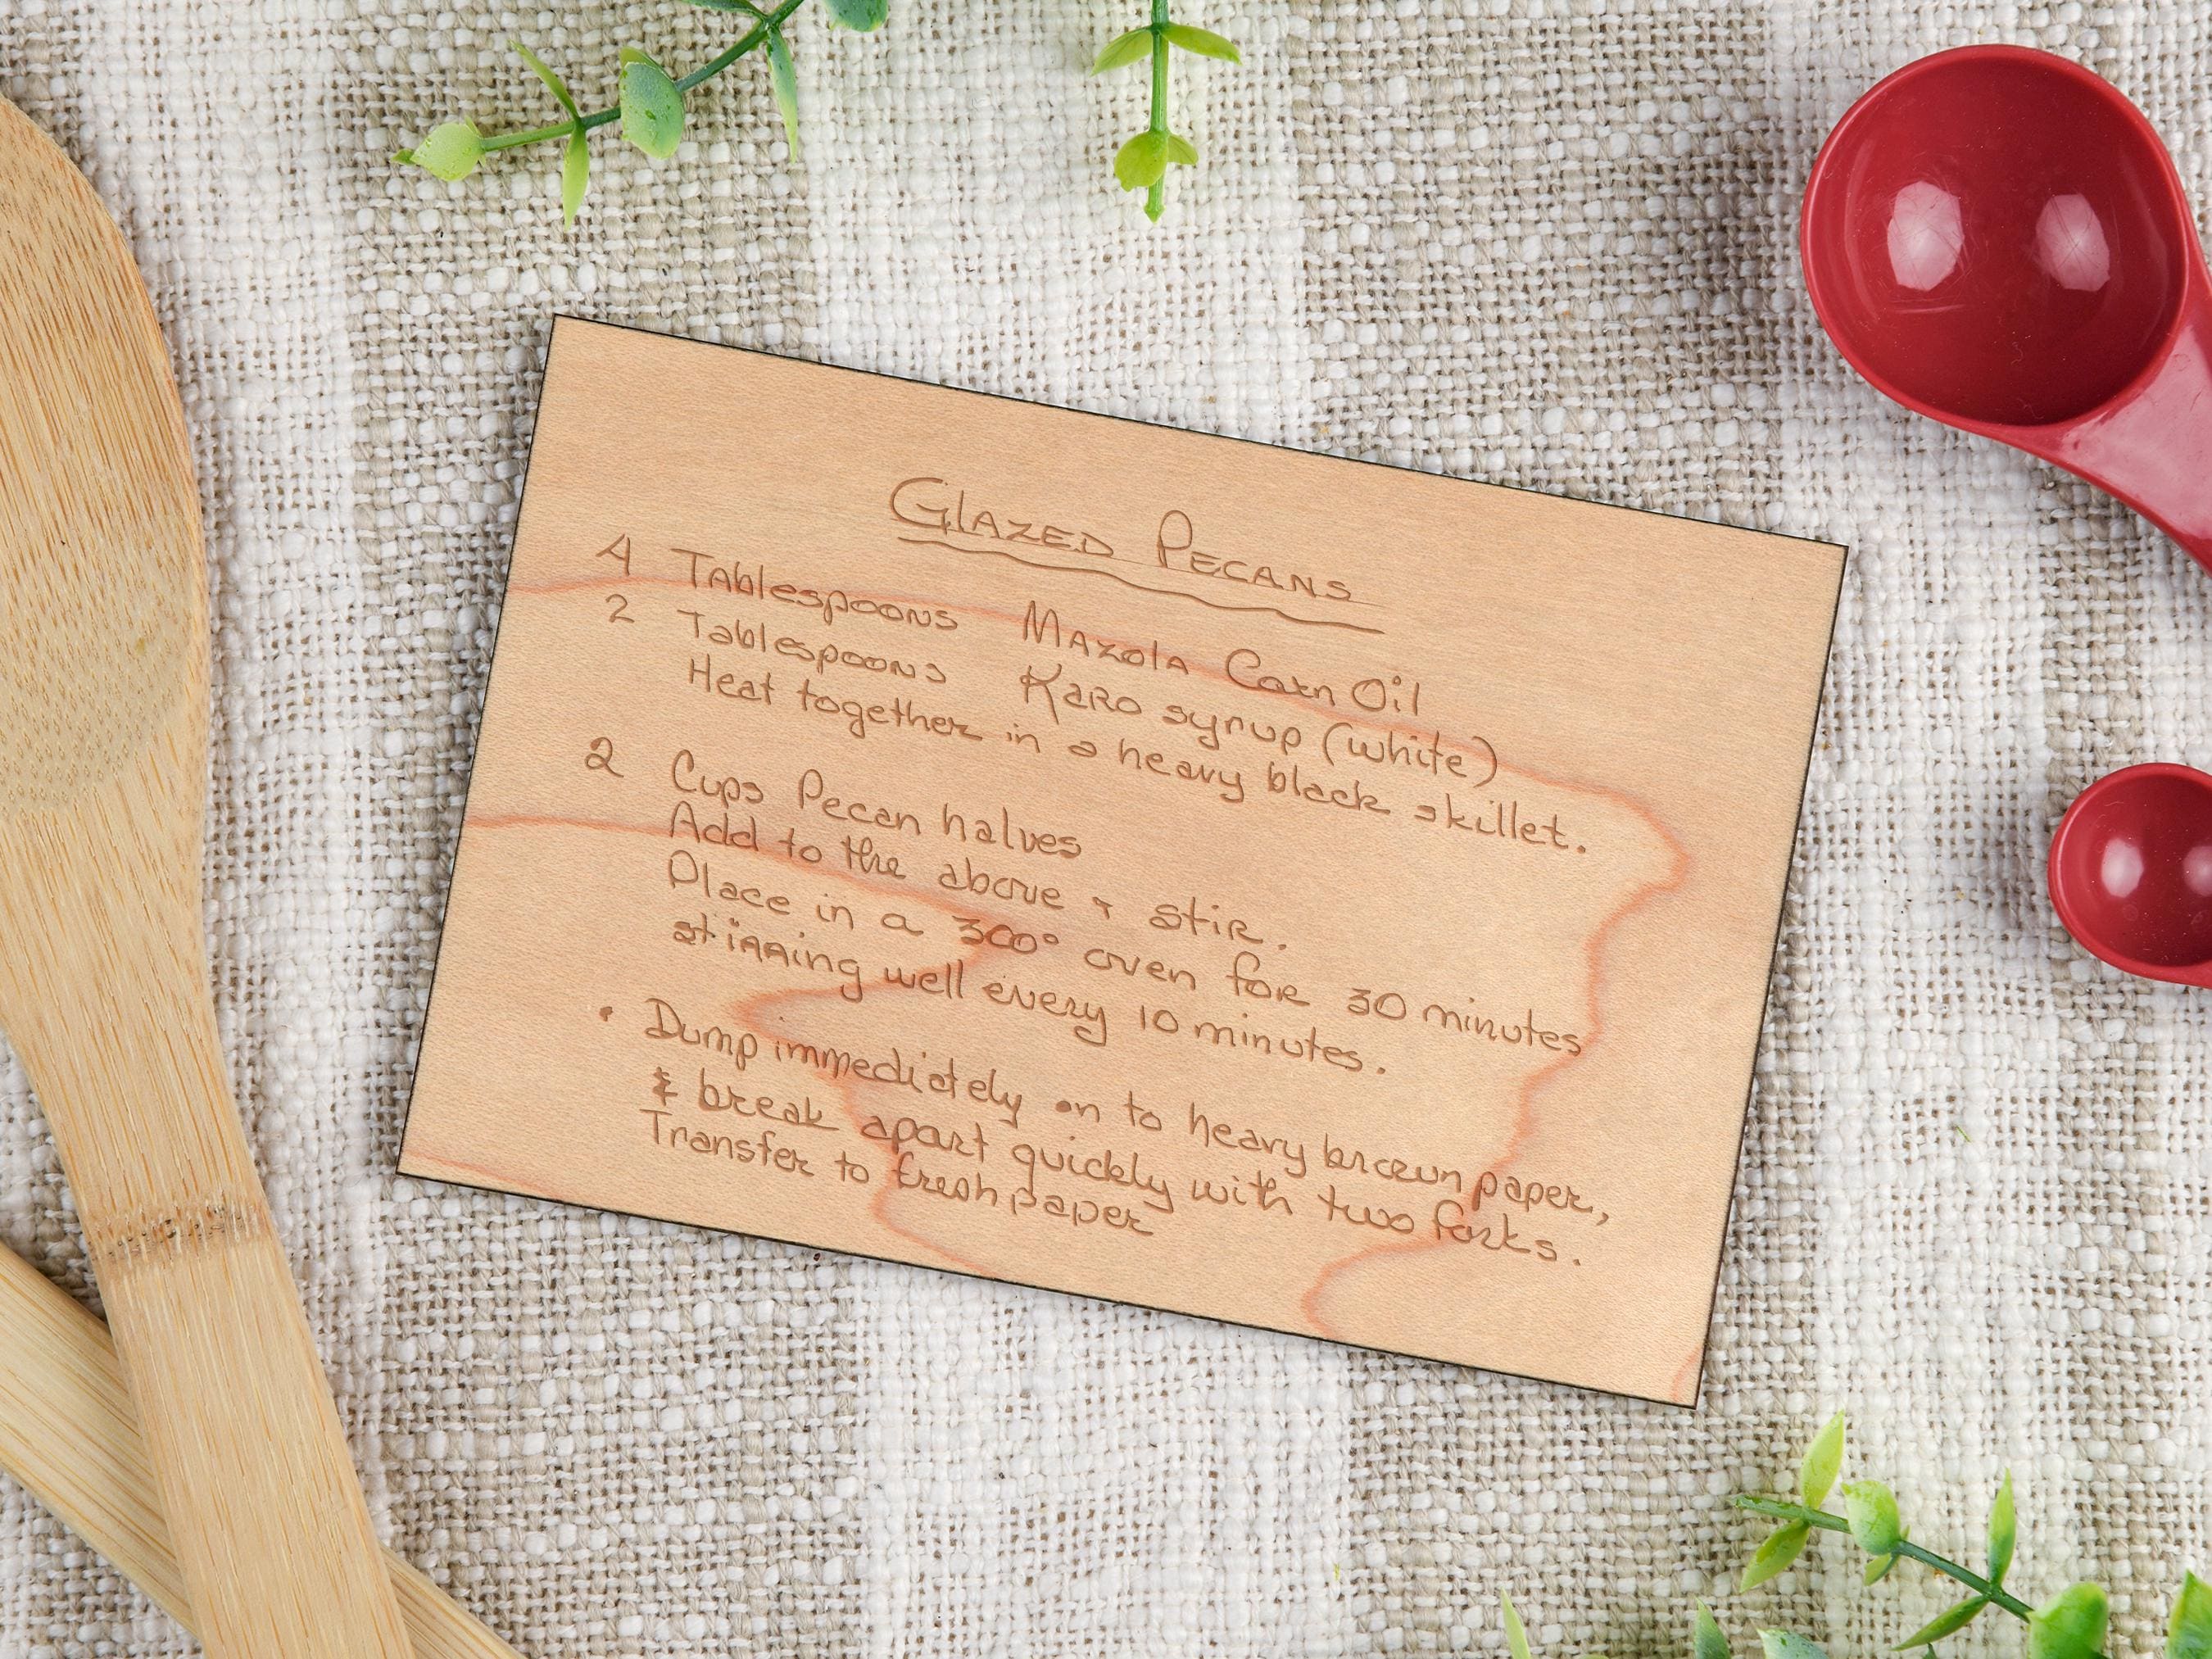 Glazed Pecans
4 Tablespoons Mazola Corn Oil
2 Tablespoons Karo syrup (white)
Heat together in a heavy black skillet.
2 Cups Pecan halves
Add to the above & stir.
Place in a 300° oven for 30 minutes
stirring well every 10 minutes.
• Dump immediately on to heavy brown paper,
& break apart quickly with two forks.
Transfer to fresh paper